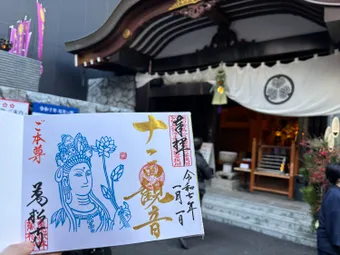 奉拝
令和七年
一月一日
十一面観音
ご本尊
萬松寺